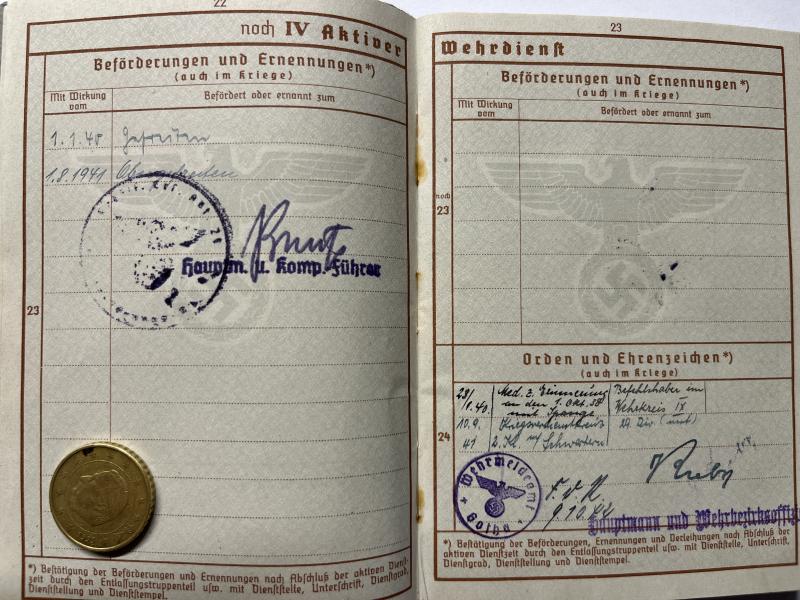 22
noch IV Aktiver
Beförderungen und Ernennungen*)
(auch im Kriege)
Mit Wirkung vom
Befördert oder ernannt zum
1.1.40 Gefreiten
1.8.1941 Obergefreiten
Hauptm. u. Komp.-Führer
23
*) Bestätigung der Beförderungen und Ernennungen nach Abschluß der aktiven Dienst-
zeit durch den Entlassungstruppenteil usw. mit Dienststelle, Unterschrift, Dienstgrad,
Dienststellung und Dienststempel.
23
Wehrdienst
Beförderungen und Ernennungen*)
(auch im Kriege)
Mit Wirkung vom
Befördert oder ernannt zum
noch
23
Orden und Ehrenzeichen*)
(auch im Kriege)
Med. z. Erinnerung Befehlshaber im
an den 1. Okt. 38 Wehrkreis IX
mit Spange
10.9. Kriegsverdienstkreuz 29. Div. (mot)
41 2. Kl. m. Schwertern
24
Wehrmeldeamt
Gotha
F. d. R.
9.10.44
Hauptmann und Wehrbezirksoffiz
*) Bestätigung der Beförderungen, Ernennungen und Verleihungen nach Abschluß der
aktiven Dienstzeit durch den Entlassungstruppenteil usw. mit Dienststelle, Unterschrift,
Dienstgrad, Dienststellung und Dienststempel.